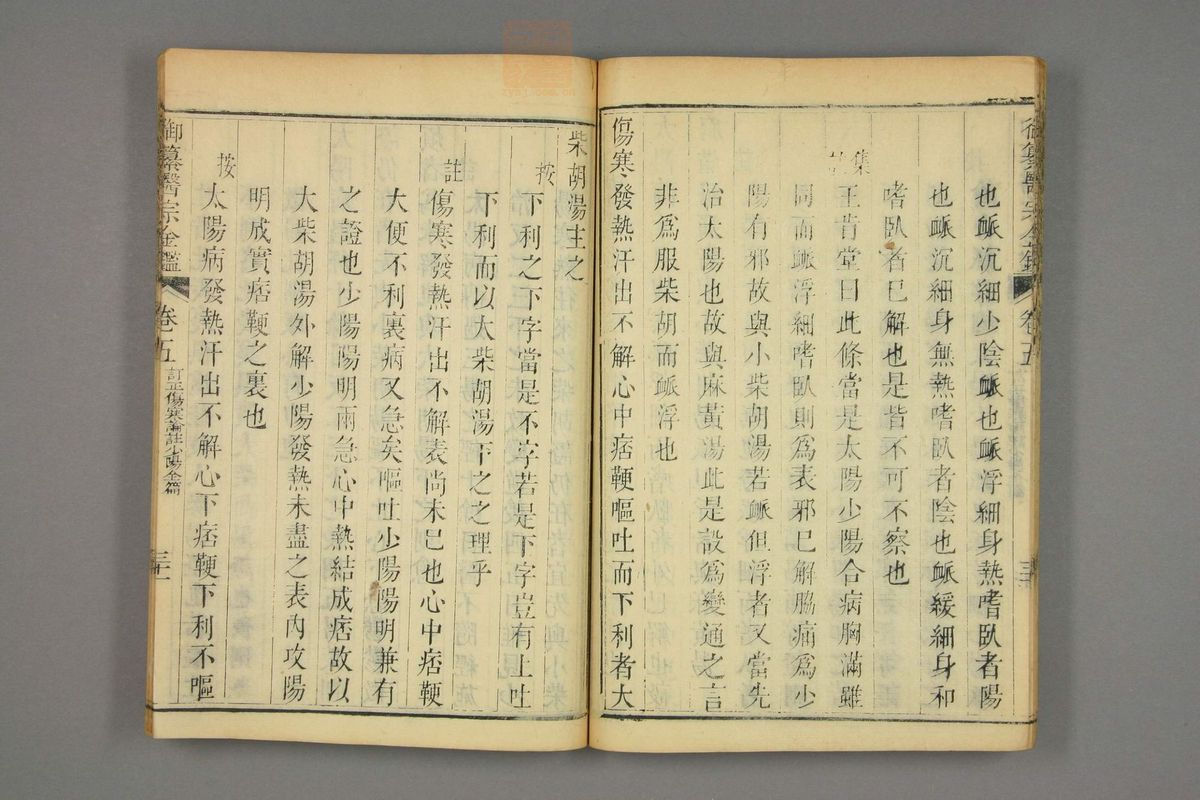 也䘑沉細少陰䘑也䘑浮細身熱嗜臥者陽
也䘑沉細身無熱嗜臥者陰也䘑緩細身和
嗜臥者已解也是皆不可不察也
集
王肯堂曰此條當是太陽少陽合病胸滿雖
同而䘑浮細嗜臥則爲表邪已解脇痛爲少
陽有邪故與小柴胡湯若䘑但浮者又當先
治太陽也故與麻黃湯此是設爲變通之言
非爲服柴胡而䘑浮也
傷寒發熱汗出不解心中痞鞕嘔吐而下利者大
柴胡湯主之
按下利之下字當是不字若是下字豈有上吐
下利而以大柴胡湯下之之理乎
註傷寒發熱汗出不解表尚未已也心中痞鞕
大便不利裏病又急矣嘔吐少陽陽明兼有
之證也少陽陽明兩急心中熱結成痞故以
大柴胡湯外解少陽發熱未盡之表內攻陽
明成實痞鞕之裏也
按太陽病發熱汗出不解心下痞鞕下利不嘔
御纂醫宗金鑑 卷五 訂正傷寒論註少陽全篇